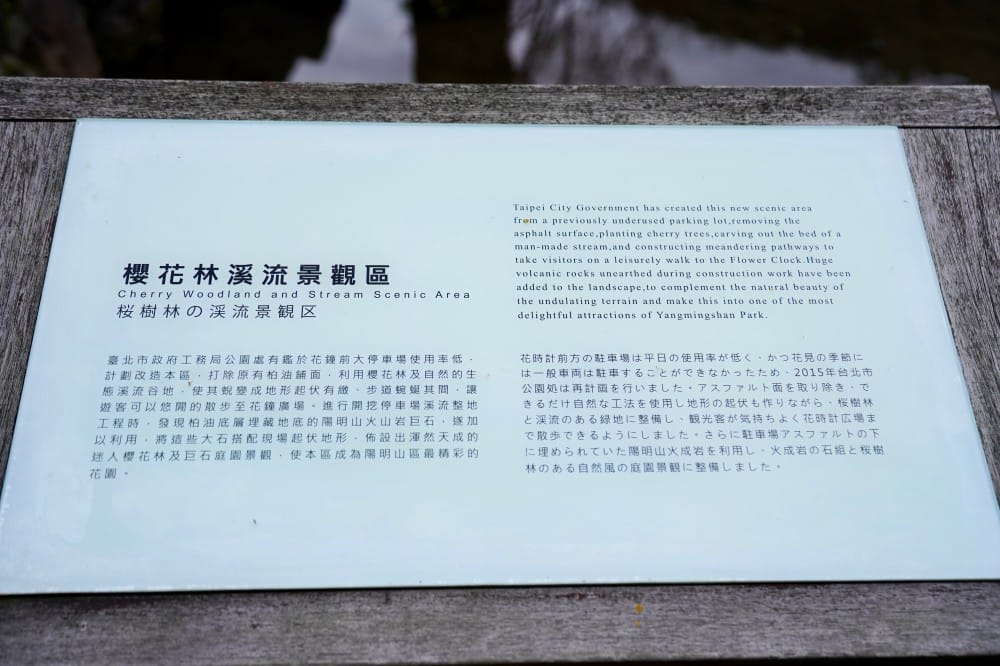 櫻花林溪流景觀區
Cherry Woodland and Stream Scenic Area
桜樹林の渓流景観区
臺北市政府工務局公園處有鑑於花鐘前大停車場使用率低，
計劃改造本區，打除原有柏油鋪面，利用櫻花林及自然的生
態溪流谷地，使其蛻變成地形起伏有緻、步道蜿蜒其間，讓
遊客可以悠閒的散步至花鐘廣場。進行開挖停車場溪流整地
工程時，發現柏油底層埋藏地底的陽明山火山岩巨石，遂加
以利用，將這些大石搭配現場起伏地形，佈設出渾然天成的
迷人櫻花林及巨石庭園景觀，使本區成為陽明山區最精彩的
花園。
Taipei City Government has created this new scenic area
from a previously underused parking lot,removing the
asphalt surface,planting cherry trees,carving out the bed of a
man-made stream,and constructing meandering pathways to
take visitors on a leisurely walk to the Flower Clock.Huge
volcanic rocks unearthed during construction work have been
added to the landscape,to complement the natural beauty of
the undulating terrain and make this into one of the most
delightful attractions of Yangmingshan Park.
花時計前方の駐車場は平日の使用率が低く、かつ花見の季節に
は一般車両は駐車することができなかったため、2015年台北市
公園処は再計画を行いました。アスファルト面を取り除き、で
きるだけ自然な工法を使用し地形の起伏も作りながら、桜樹林
と渓流のある緑地に整備し、観光客が気持ちよく花時計広場ま
で散歩できるようにしました。さらに駐車場アスファルトの下
に埋められていた陽明山火成岩を利用し、火成岩の石組と桜樹
林のある自然風の庭園景観に整備しました。